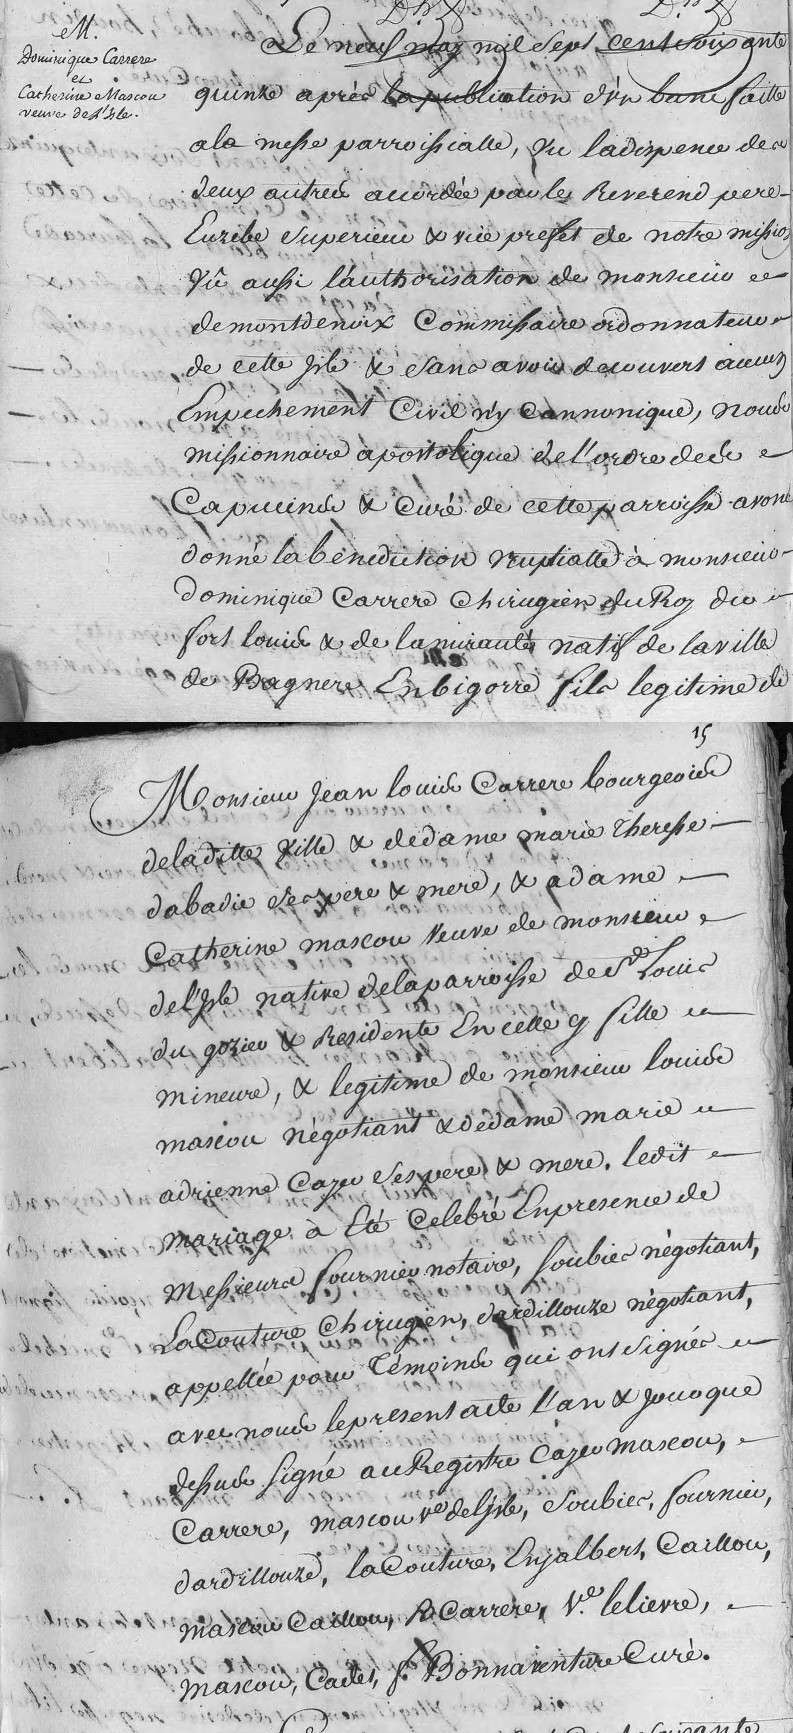 M.
Dominique Carrere
et
Catherine Mascou
veuve de l'Isle.
Le neuf may mil sept cent soixante
quinze aprés la publication d'un banc faitte
a la messe parroissialle, vu la dispence des
deux autres accordée par le Reverend pere
Euzebe Superieur & vice prefet de notre mission
Vû aussi l'authorisation de monsieur
de montdenoix Commissaire ordonnateur
de cette Isle & sans avoir decouvert aucun
Empechement Civil n'y Cannonique, nous
missionnaire apostolique de l'ordre des
Capucins & Curé de cette parroisse avons
donné la bénédiction nuptialle à monsieur
Dominique Carrere Chirugien du Roy du
fort louis & de lamirauté natif de la ville
de Bagnere En bigorre fils legitime de
15
Monsieur Jean louis Carrere bourgeois
de laditte Ville & de dame marie therese
dabadie ses pere & mere, & a dame
Catherine mascou veuve de monsieur
de l'Isle native de la parroisse de St Louis
du gozier & Residente En celle cy fille
mineure, & legitime de monsieur louis
mascou négotiant & de dame marie
adrienne Cazeu ses pere & mere. ledit
mariage à Eté Celebré En presence de
Messieurs fournier notaire, Soubies négotiant,
LaCouture Chirugien, dardillouze négotiant,
appellés pour Témoins qui ont signés
avec nous le present acte l'an & jour que
dessus signé au Registre Cazeu mascou,
Carrere, mascou ve de l'Isle, Soubies, fournier,
dardillouze, la Couture, Enjalbert, Caillou,
mascou Caillou, R. Carrere, Ve. lelievre,
mascou, Cadet, f. Bonnaventure Curé.